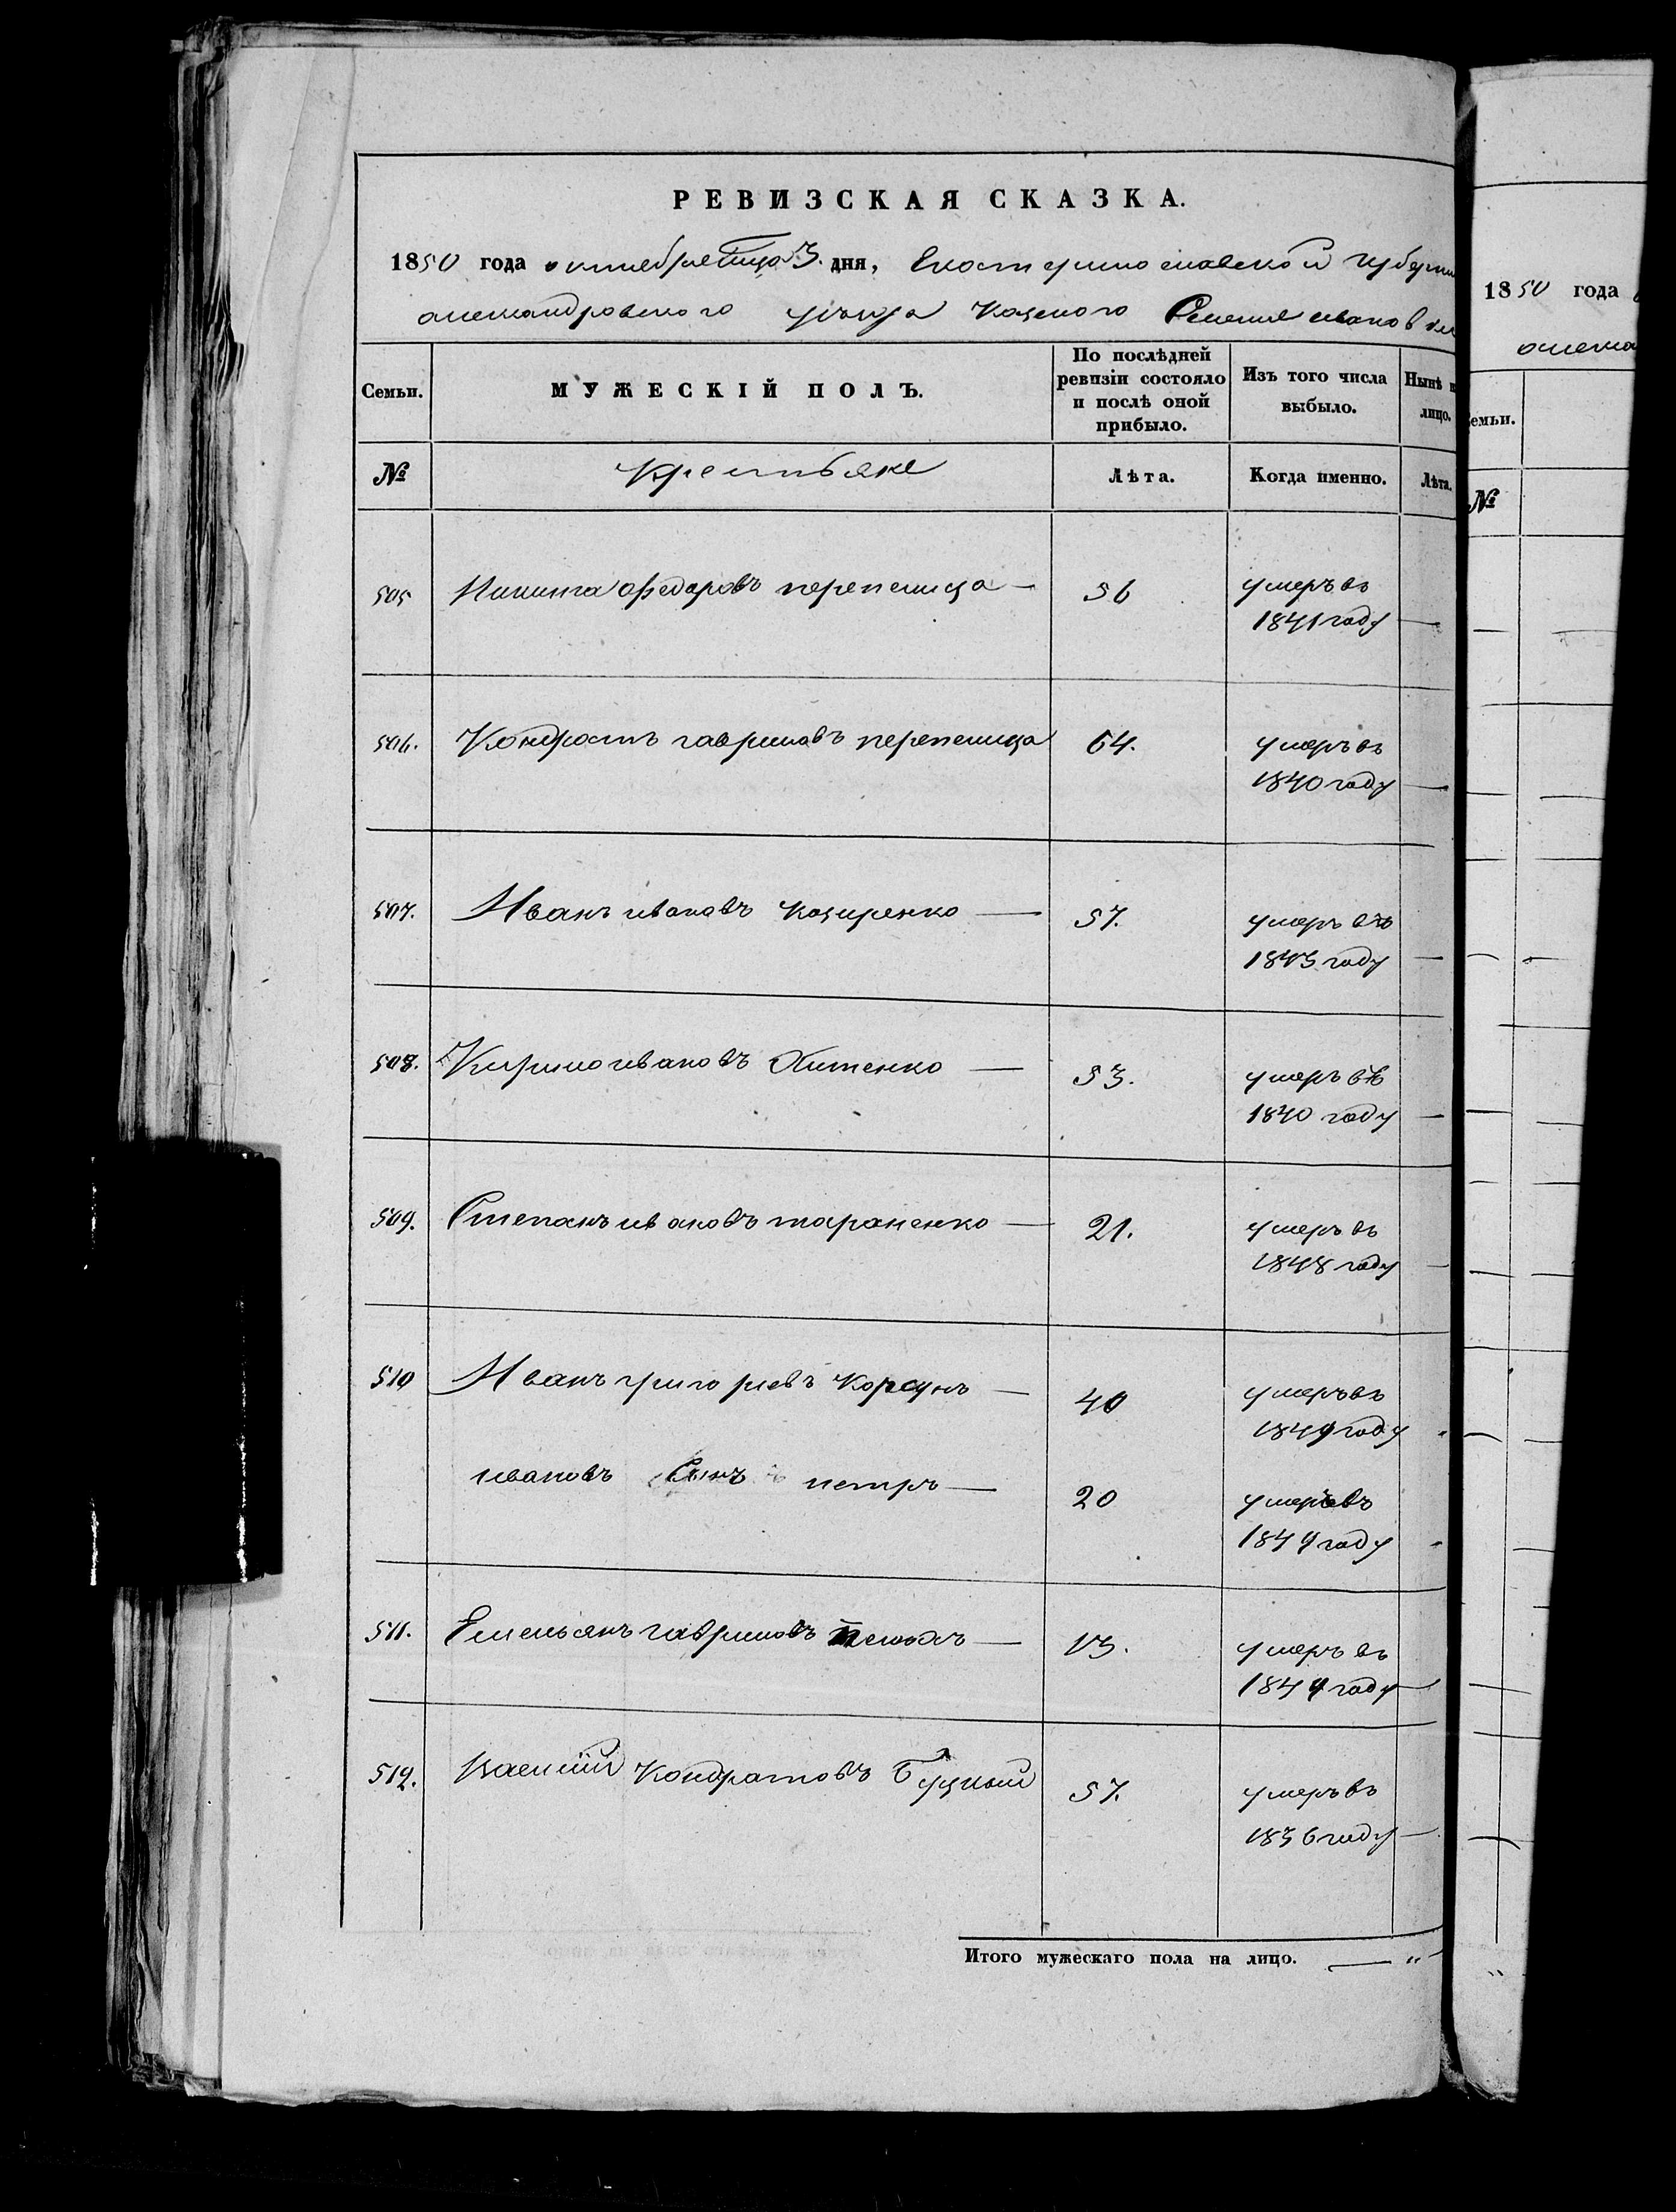 РЕВИЗСКАЯ СКАЗКА.
1850 года октября месяца 3. дня, Екатеринославской губерни
александровского уезда казеного Селения иванов
Семьи. МУЖЕСКІЙ ПОЛЪ. По послѣдней ревизіи состояло и послѣ оной прибыло. Изъ того числа выбыло. Нынѣ н лицо.
№ Крестьяне Лѣта. Когда именно. Лѣта.
505 Никита федоровъ перепелица — 56 умеръ въ
1841 году —
506. Кондратъ гавриловъ перепелица 64. умеръ въ
1840 году —
507. Иванъ ивановъ казиренко — 57. умеръ въ
1843 году —
508. Кирило ивановъ Хитенко — 53. умеръ въ
1840 году —
509. Степанъ ивановъ тараненко — 21. умеръ въ
1848 году —
510 Иванъ григориевъ Корсунъ — 40 умеръ въ
1849 году
ивановъ Сынъ петръ — 20 умеръ въ
1849 году
511. Емельянъ гавриловъ — 13. умеръ въ
1849 году —
512. Василий Кондратовъ Буцкий 57. умеръ въ
1836 году —
Итого мужескаго пола на лицо. — "
1850 года
алекса
емьи.
№